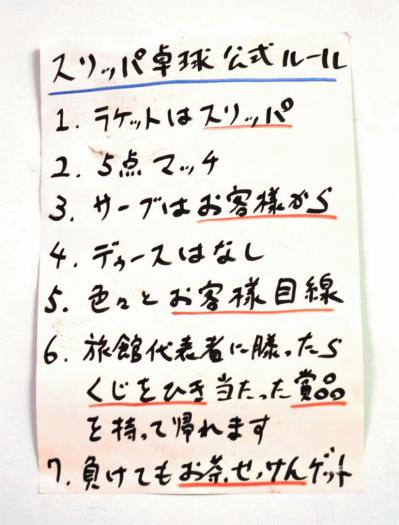 スリッパ卓球公式ルール
1. ラケットはスリッパ
2. 5点マッチ
3. サーブはお客様から
4. デュースはなし
5. 色々とお客様目線
6. 旅館代表者に勝ったら
くじをひき当たった賞品
を持って帰れます
7. 負けてもお茶.せっけんゲット